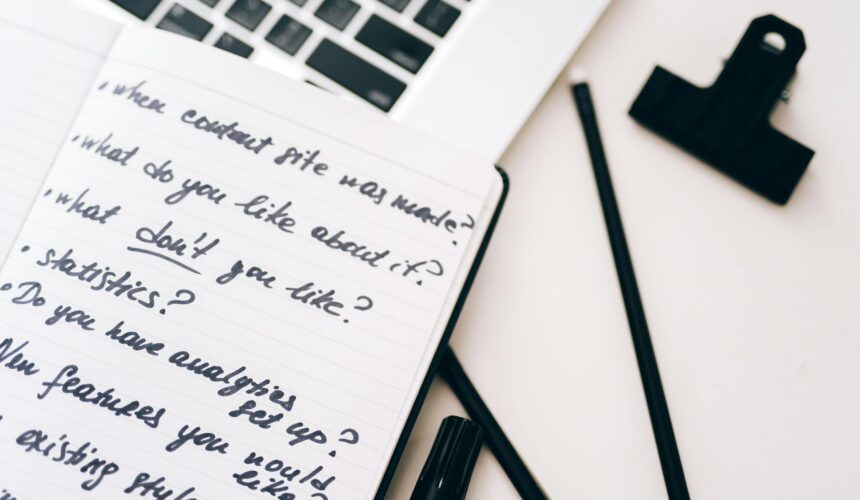 • when content site was made?
• What do you like about it?
• What don't you like?
• statistics?
• Do you have analytics
set up?
New features you would
like?
existing style